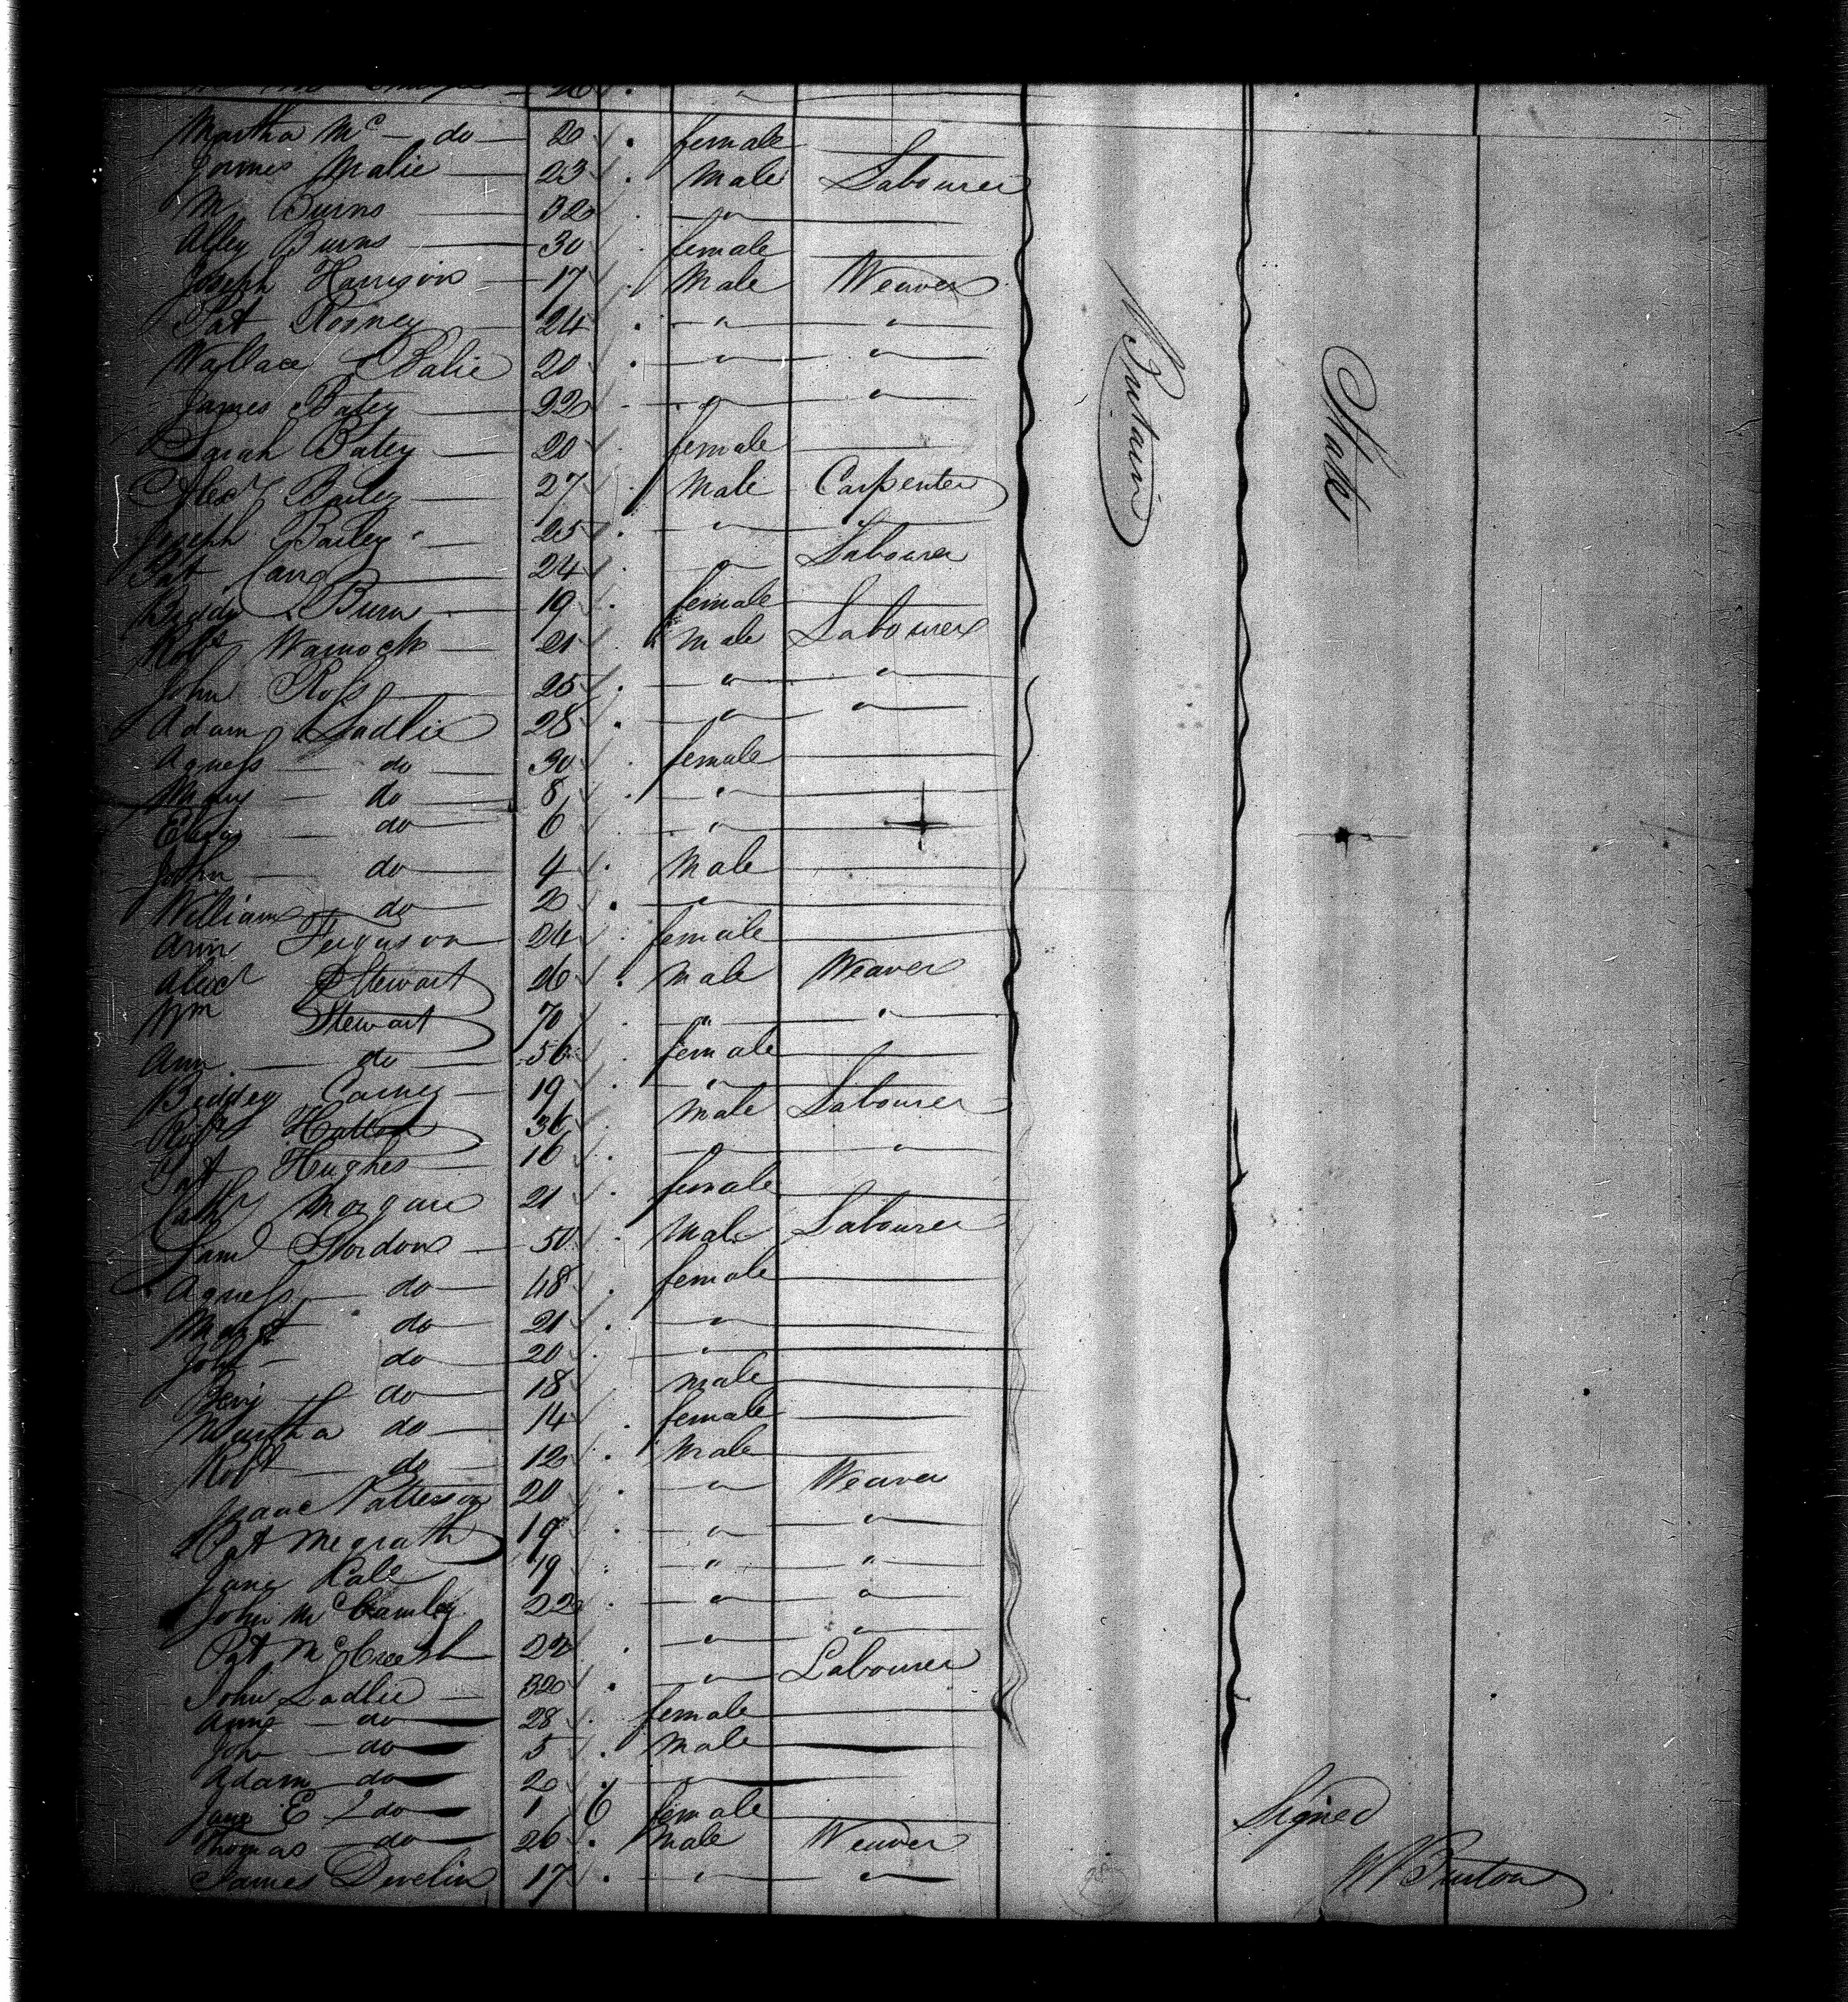 26 "
Martha Mc do 20 female
James Malie 23 Male Labourer
M Burns 32 "
Alley Burns 30 female
Joseph Harrison 17 Male Weaver
Pat Rooney 24 " "
Wallace Balie 20 " "
James Batey 22 " "
Sarah Batey 20 female
Alexr Bailey 27 Male Carpenter
Joseph Bailey 25 " "
Pat 24 " Labourer
Biddy Burn 19 female
Robt Warnock 21 Male Labourer
John Ross 25 " "
Adam Sadlie 28 " "
Agness do 30 female
Mary do 8 "
Eliza do 6 "
John do 4 Male
William do 2 "
Ann Ferguson 24 female
Alexr Stewart 26 Male Weaver
Wm Stewart 70 " "
Ann do 56 female
Biddey Carney 19 "
Robt 36 Male Labourer
Pat Hughes 16 " "
Cathr Morgan 21 female
Saml Gordon 50 Male Labourer
Agness do 48 female
Margt do 21 "
do 20 "
Benj do 18 male
Martha do 14 female
Robt do 12 Male
Isaac Patterson 20 " Weaver
Pat Mcgrath 19 " "
Jane 19 " "
John McCamley 22 " "
Pat McCreesh 22 " "
John Sadlie 32 " Labourer
Anne do 28 female
John do 5 Male
Adam do 2 "
Jane E do 1 6 female
Thomas do 26 Male Weaver
James Develin 17 " "
Britain
States
Signed
W Burton